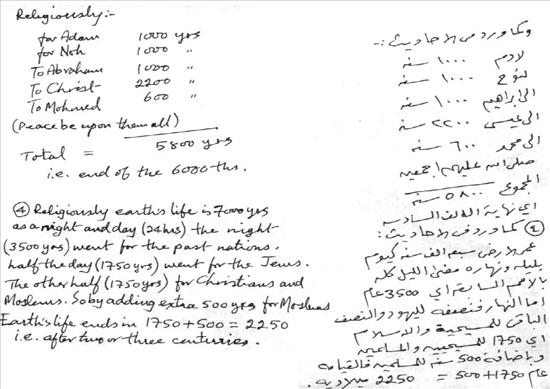 Religiously:-
for Adam 1000 yrs
for Noh 1000 "
To Abraham 1000 "
To Christ 2200 "
To Mohmed 600 "
(Peace be upon them all)
Total = 5800 yrs
i.e. end of the 6000 ths.
④ Religiously earth's life is 7000 yrs
as a night and day (24 hrs) the night
(3500 yrs) went for the past nations.
half the day (1750 yrs) went for the Jews.
The other half (1750 yrs) for Christians and
Moslems. So by adding extra 500 yrs for Moslems
Earth's life ends in 1750 + 500 = 2250
i.e. after two or three centuries.
وكما ورد في الاحاديث :-
لادم ١٠٠٠ سنه
لنوح ١٠٠٠ سنه
الى ابراهيم ١٠٠٠ سنه
الى عيسى ٢٢٠٠ سنه
الى محمد ٦٠٠ سنه
صلى الله عليهم اجمعين
المجموع ٥٨٠٠ سنه
اي نهاية الالف السادسه
④ كما ورد في الاحاديث :
عمر الارض سبعه الف سنه كيوم
بليله ونهاره مضى الليل كله
بالامم السابقه اي 3500 عام
اما النهار فنصفه لليهود والنصف
الباقي للمسيحية والاسلام
اي 1750 للمسيحيه والمسلمين
وباضافة 500 سنه للمسلمين فالقيامه
عام 1750 + 500 = 2250 ميلاديه.